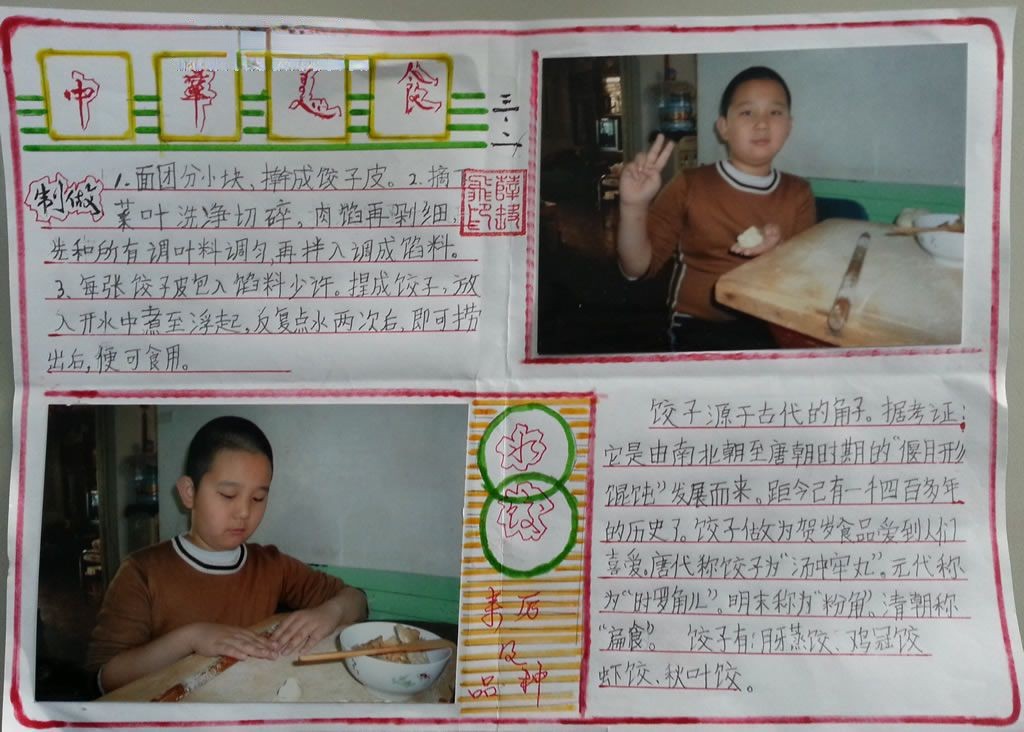 中華美食
三·二
制做
1.面团分小块、擀成饺子皮。2.摘
菜叶洗净切碎，肉馅再剁细，
先和所有调叶料调匀,再拌入调成馅料。
3、每张饺子皮包入馅料少许。捏成饺子，放
入开水中煮至浮起，反复点水两次后，即可捞
出后，便可食用。
水饺
来历
及
品种
饺子源于古代的角子。据考证：
它是由南北朝至唐朝时期的“偃月形
馄饨”发展而来。距今已有一千四百多年
的历史了。饺子做为贺岁食品爱到人们
喜爱。唐代称饺子为“汤中牢丸”。元代称
为“时罗角儿”。明末称为“粉角”、清朝称
“扁食”。 饺子有：月牙蒸饺、鸡冠饺
虾饺、秋叶饺。